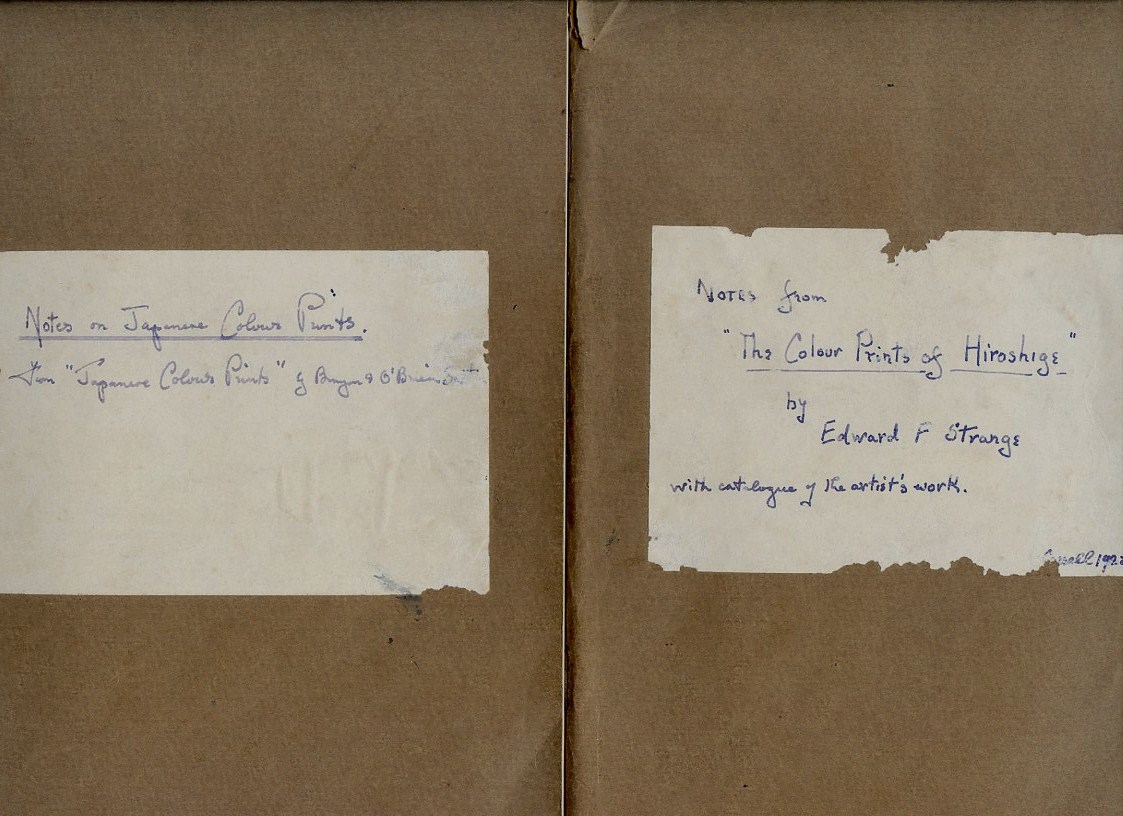 Notes on Japanese Colour Prints.
from "Japanese Colour Prints" by
Notes from
"The Colour Prints of Hiroshige"
by
Edward F Strange
with catalogue of the artist's work.